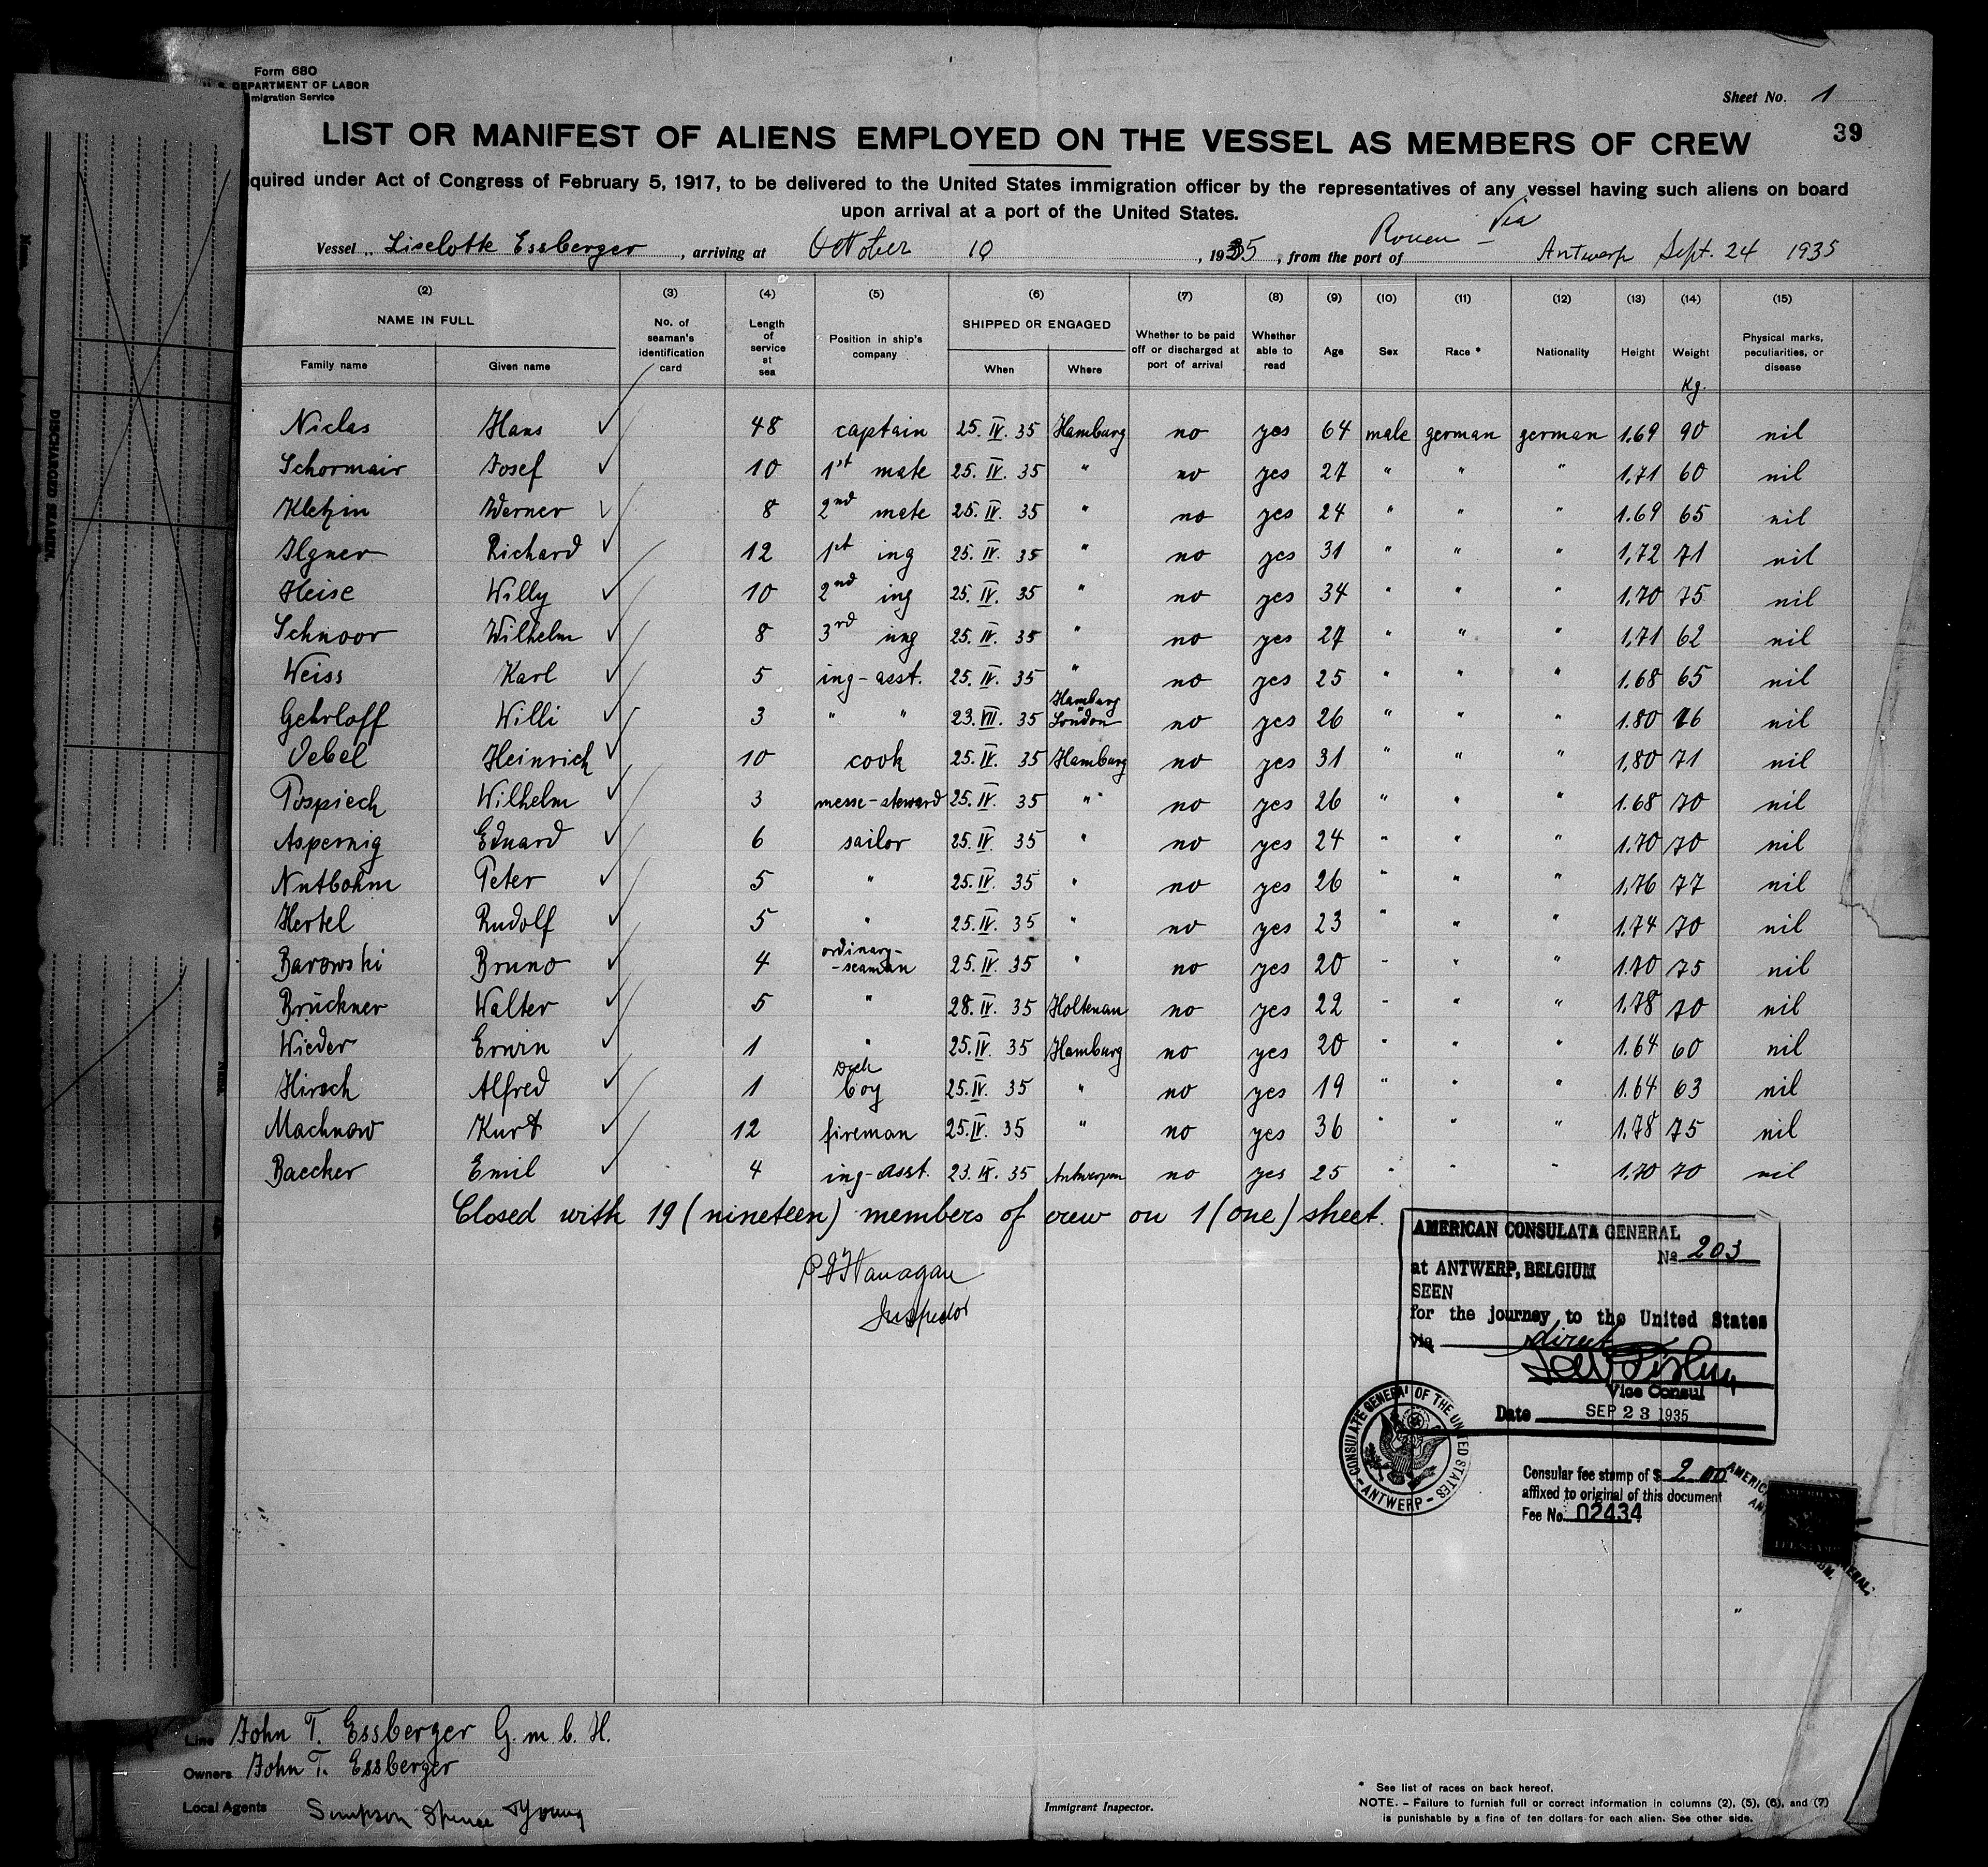 Form 680
U. S. DEPARTMENT OF LABOR
migration Service
Sheet No. 1
39
LIST OR MANIFEST OF ALIENS EMPLOYED ON THE VESSEL AS MEMBERS OF CREW
quired under Act of Congress of February 5, 1917, to be delivered to the United States immigration officer by the representatives of any vessel having such aliens on board
upon arrival at a port of the United States.
Vessel Liselotte Essberger, arriving at October 10, 1935, from the port of Rouen - Via Antwerp Sept. 24 1935
(2) (3) (4) (5) (6) (7) (8) (9) (10) (11) (12) (13) (14) (15)
NAME IN FULL
Family name Given name
No. of seaman's identification card
Length of service at sea
Position in ship's company
SHIPPED OR ENGAGED
When Where
Whether to be paid off or discharged at port of arrival
Whether able to read
Age Sex Race * Nationality Height Weight
Physical marks, peculiarities, or disease
Kg.
Niclas Hans ✓ 48 captain 25. IV. 35 Hamburg no yes 64 male german german 1.69 90 nil
Schormair Josef ✓ 10 1st mate 25. IV. 35 " no yes 27 " " " 1,71 60 nil
Kletzin Werner ✓ 8 2nd mate 25. IV. 35 " no yes 24 " " " 1.69 65 nil
Ilgner Richard ✓ 12 1st ing 25. IV. 35 " no yes 31 " " " 1,72 71 nil
Heise Willy ✓ 10 2nd ing 25. IV. 35 " no yes 34 " " " 1.70 75 nil
Schnoor Wilhelm ✓ 8 3rd ing 25. IV. 35 " no yes 27 " " " 1.71 62 nil
Weiss Karl ✓ 5 ing-asst. 25. IV. 35 " no yes 25 " " " 1.68 65 nil
Gehrloff Willi ✓ 3 " " 23. VII. 35 Hamburg London no yes 26 " " " 1.80 76 nil
Oebel Heinrich ✓ 10 cook 25. IV. 35 Hamburg no yes 31 " " " 1,80 71 nil
Pospiech Wilhelm ✓ 3 messe-steward 25. IV. 35 " no yes 26 " " " 1.68 70 nil
Aspernig Eduard ✓ 6 sailor 25. IV. 35 " no yes 24 " " " 1.70 70 nil
Nutbohm Peter ✓ 5 " 25. IV. 35 " no yes 26 " " " 1,76 77 nil
Hertel Rudolf ✓ 5 " 25. IV. 35 " no yes 23 " " " 1.74 70 nil
Barowski Bruno ✓ 4 ordinary-seaman 25. IV. 35 " no yes 20 " " " 1.70 75 nil
Brückner Walter ✓ 5 " 28. IV. 35 Holtenau no yes 22 " " " 1.78 70 nil
Wieder Erwin ✓ 1 " 25. IV. 35 Hamburg no yes 20 " " " 1.64 60 nil
Hirsch Alfred ✓ 1 boy 25. IV. 35 " no yes 19 " " " 1.64 63 nil
Machnow Kurt ✓ 12 fireman 25. IV. 35 " no yes 36 " " " 1.78 75 nil
Baecker Emil ✓ 4 ing-asst. 23. IX. 35 Antwerpen no yes 25 " " " 1.70 70 nil
Closed with 19 (nineteen) members of crew on 1 (one) sheet.
Inspector
AMERICAN CONSULATA GENERAL
No 203
at ANTWERP, BELGIUM
SEEN
for the journey to the United States
via direct
Vice Consul
Date SEP 23 1935
CONSULATE GENERAL OF THE UNITED STATES - ANTWERP -
Consular fee stamp of $ 2.00
affixed to original of this document
Fee No. 02434
DISCHARGED SEAMEN
Line John T. Essberger G.m.b.H.
Owners John T. Essberger
Local Agents Simpson Spence Young
Immigrant Inspector.
* See list of races on back hereof.
NOTE. - Failure to furnish full or correct information in columns (2), (5), (6), and (7)
is punishable by a fine of ten dollars for each alien. See other side.